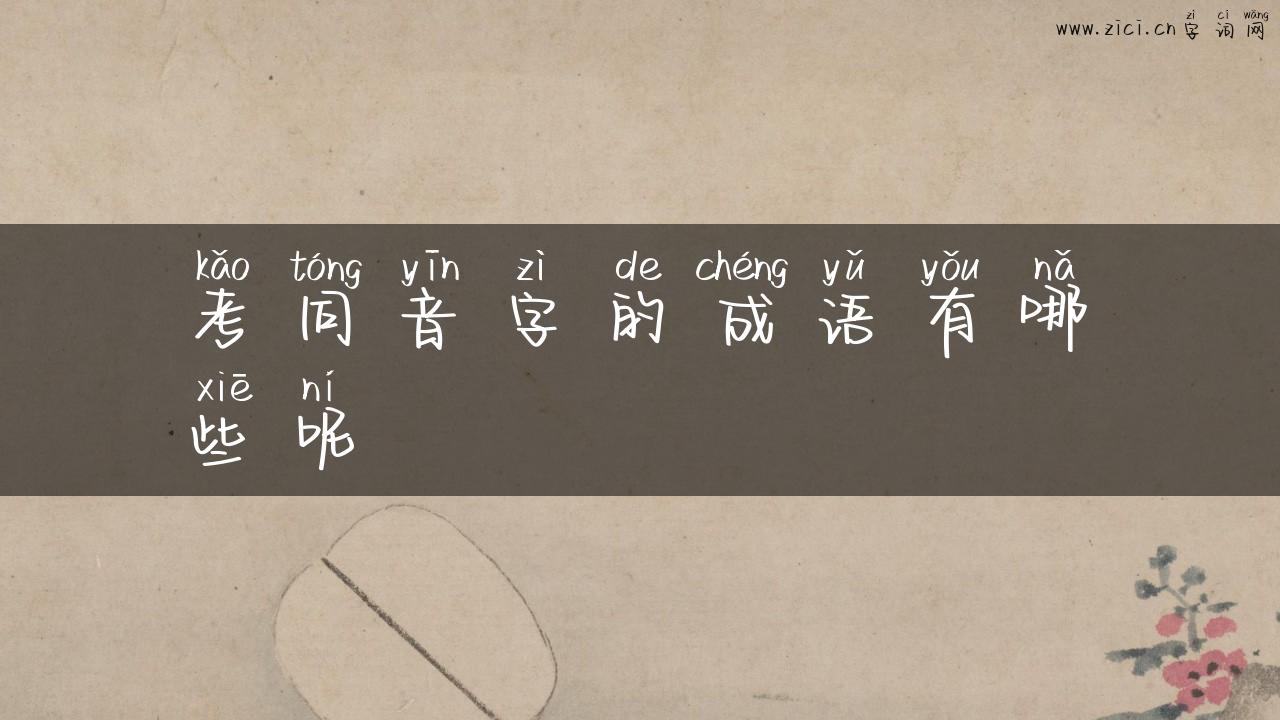 zì cí wǎng
www.zici.cn 字词网
kǎo tóng yīn zì de chéng yǔ yǒu nǎ
考同音字的成语有哪
xiē ní
些呢